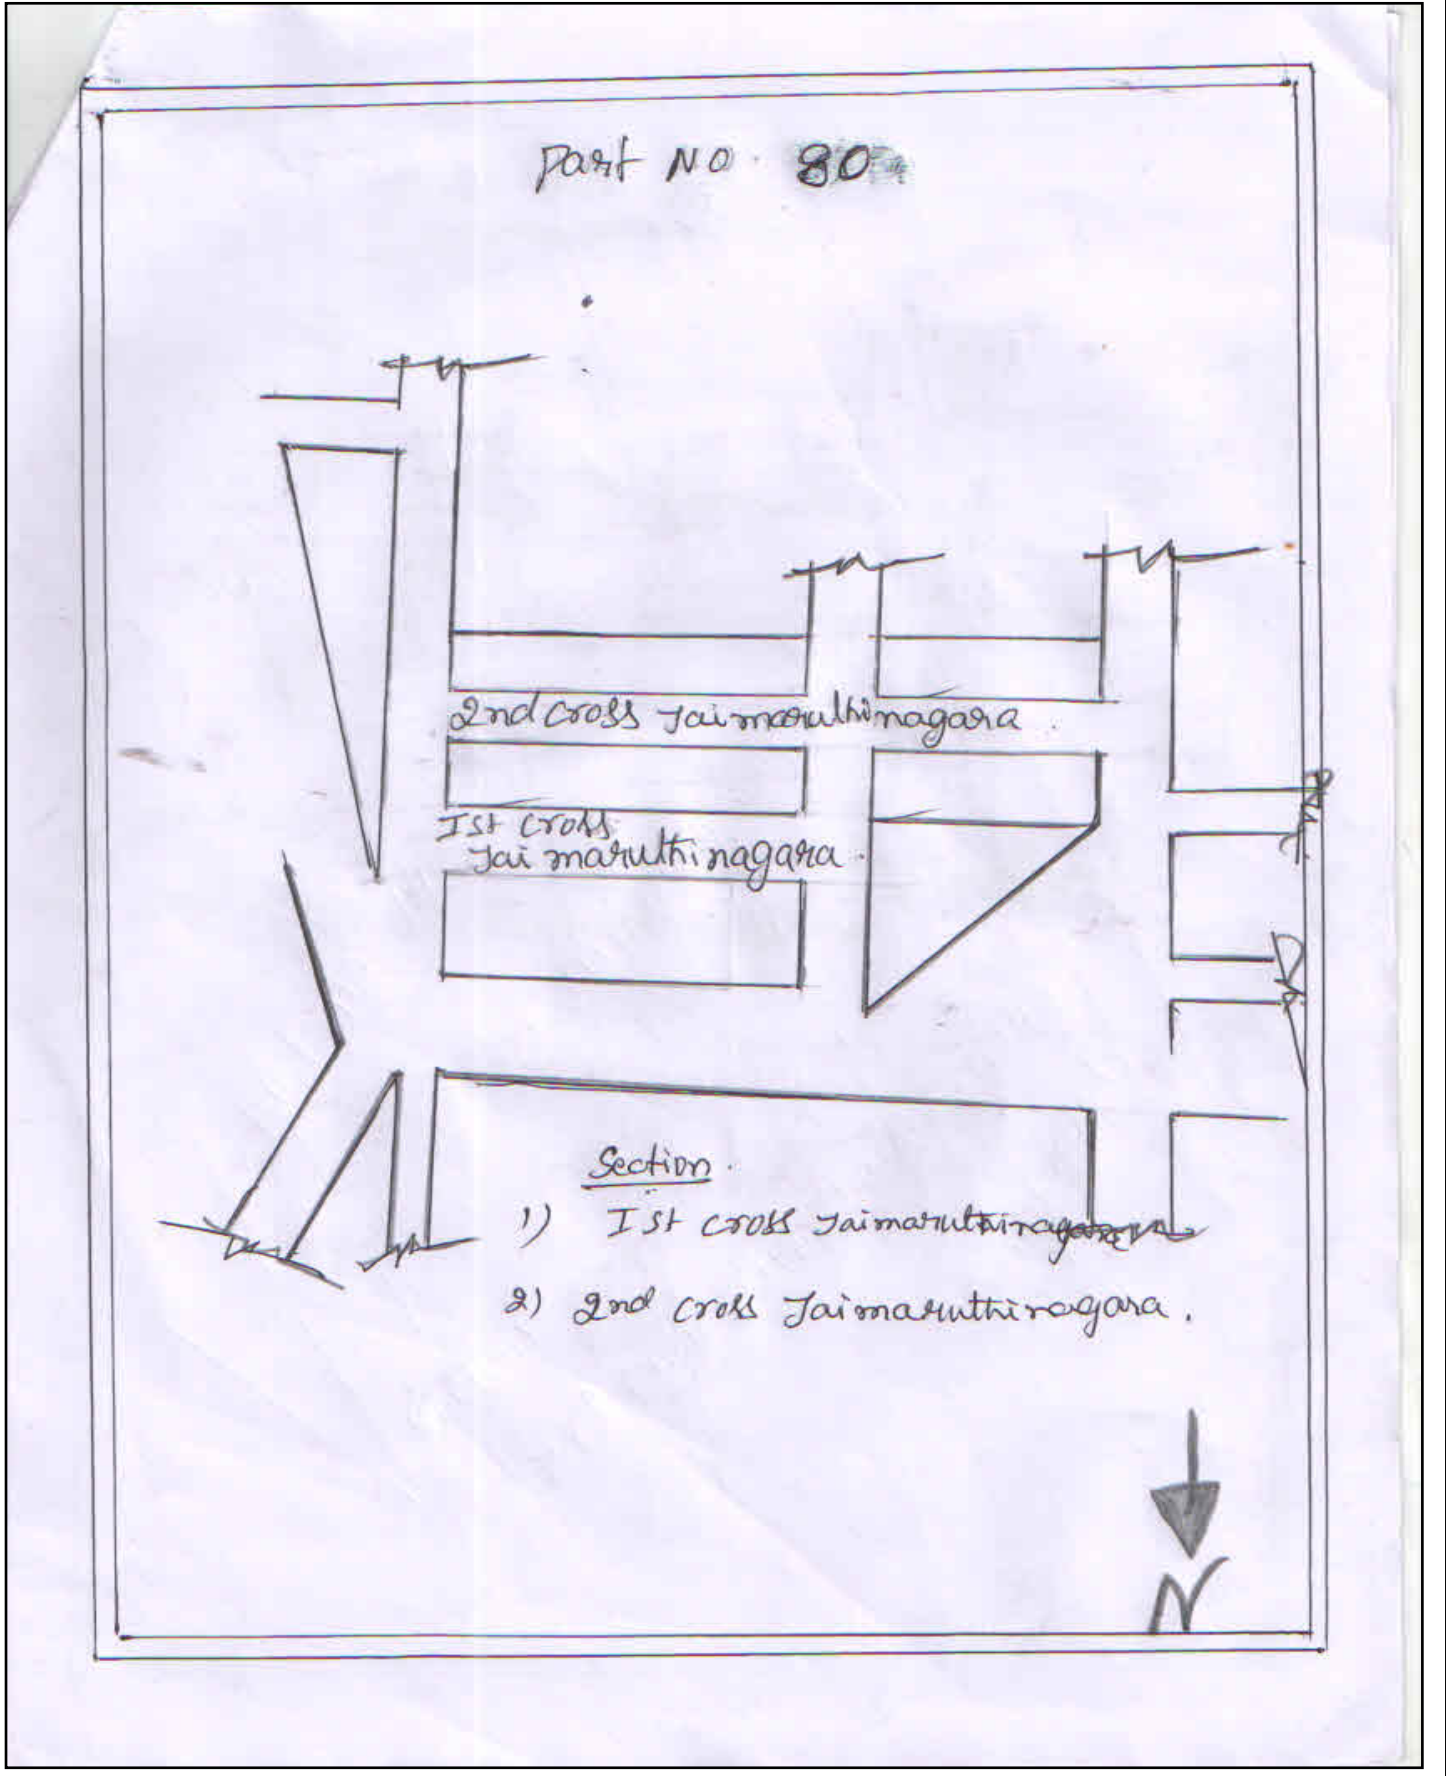 Part NO. 80
2nd cross Jaimaruthinagara.
Ist cross
Jai maruthinagara.
Section.
1) Ist cross Jaimaruthinagara
2) 2nd cross Jaimaruthinagara.
N